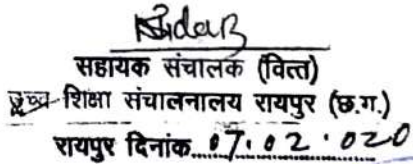 सहायक संचालक (वित्त)
उच्च शिक्षा संचालनालय रायपुर (छ.ग.)
रायपुर दिनांक 07.02.020